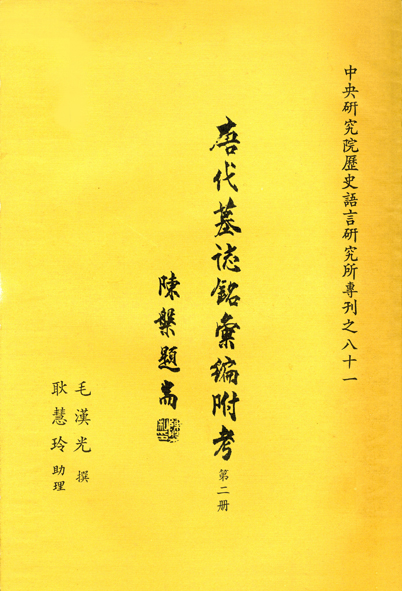 中央研究院歷史語言研究所專刊之八十一
唐代墓誌銘彙編附考 第二册
陳槃題耑
毛漢光 撰
耿慧玲 助理